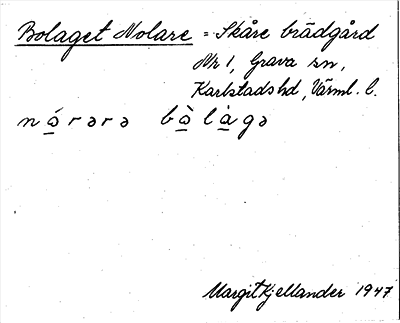 Bolaget Nolare = Skåre brädgård
Nr 1, Grava sn,
Karlstads hd, Värml. l.
Margit Kjellander 1947